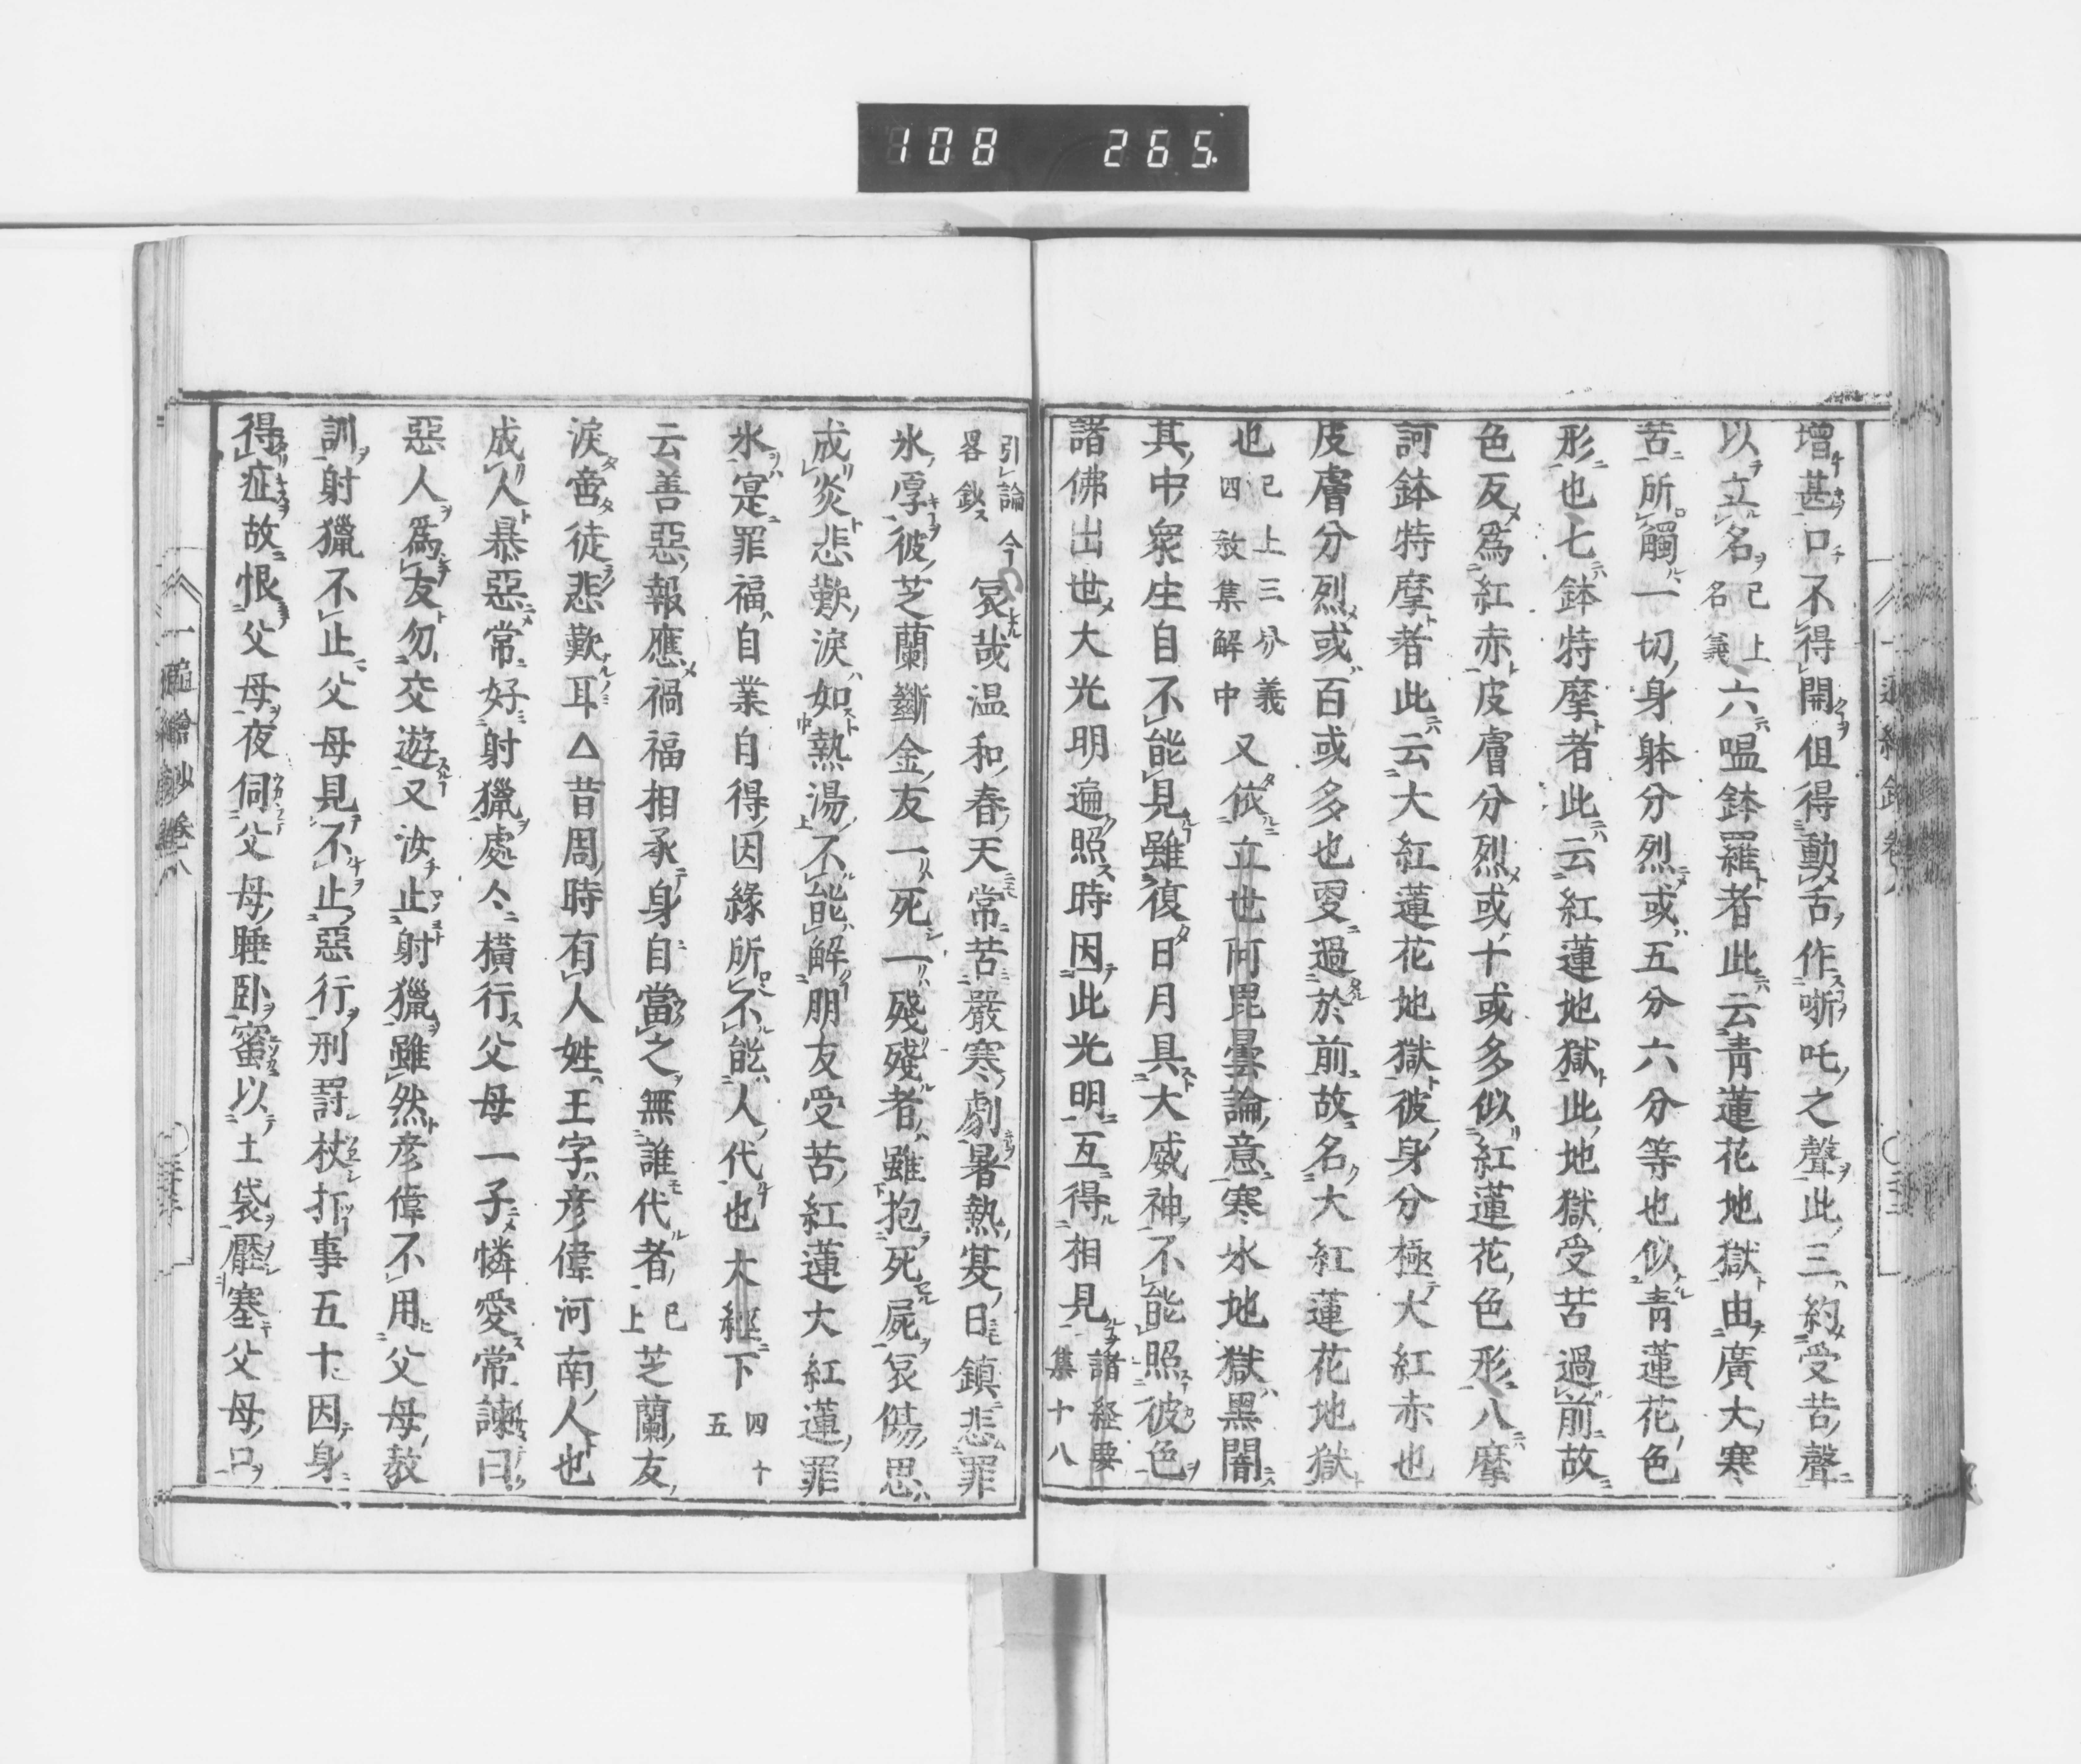 108 265
增甚口不得開但得動舌作哳吒之聲此三約受苦聲
以立名已上名義六嗢鉢羅者此云青蓮花地獄由廣大寒
苦所觸一切身躰分烈或五分六分等也似青蓮花色
形也七鉢特摩者此云紅蓮地獄此地獄受苦過前故
色反爲紅赤皮膚分烈或十或多似紅蓮花色形八摩
訶鉢特摩者此云大紅蓮花地獄彼身分極大紅赤也
皮膚分烈或百或多也更過於前故名大紅蓮花地獄
也已上三分義四敎集解中又依立世阿毘曇論意寒氷地獄黑闇
其中衆生自不能見雖復日月具大威神不能照彼色
諸佛出世大光明遍照時因此光明互得相見諸経要集十八
引論畧鈔今哀哉温和春天常苦嚴寒劇暑熱夏日鎮悲罪
氷厚彼芝蘭斷金友一死一殘殘者雖抱死屍哀傷思
成炎悲歎淚如熱湯不能解朋友受苦紅蓮大紅蓮罪
氷寔罪福自業自得因緣所不能人代也大經下四十五
云善惡報應禍福相承身自當之無誰代者已上芝蘭友
淚啻徒悲歎耳△昔周時有人姓王字彦偉河南人也
成人暴惡常好射獵處々橫行父母一子憐愛常諫曰
惡人爲友勿交遊又汝止射獵雖然彦偉不用父母敎
訓射獵不止父母見不止惡行刑罸杖打事五十因身
得疵故恨父母夜伺父母睡臥蜜以土袋壓塞父母口
鈔卷八